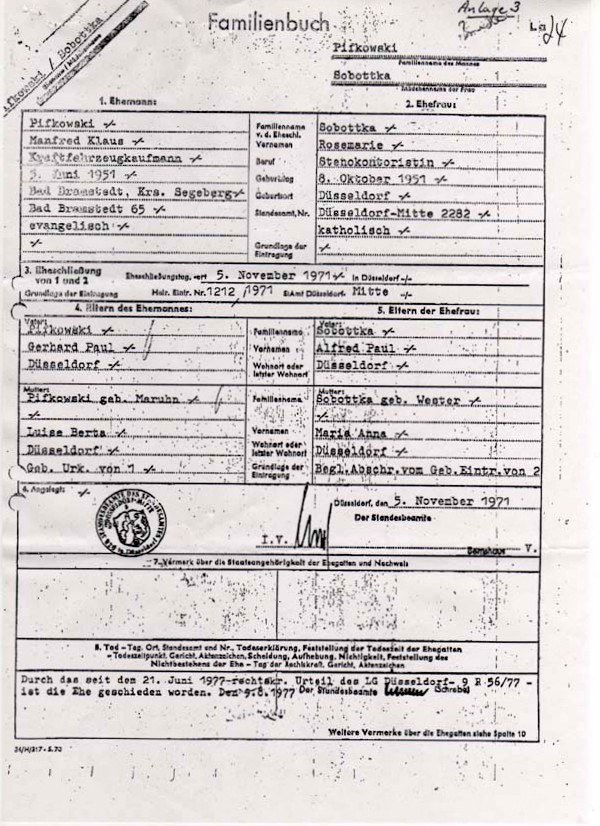 Anlage 3
Familienbuch
Pifkowski / Sobottka
Pifkowski
Familienname des Mannes
Sobottka
Mädchenname der Frau
1. Ehemann:
2. Ehefrau:
Pifkowski -/- Familienname v. d. Eheschl. Sobottka -/-
Manfred Klaus -/- Vornamen Rosemarie -/-
Kraftfahrzeugkaufmann -/- Beruf Stenokontoristin -/-
5. Juni 1951 -/- Geburtstag 8. Oktober 1951 -/-
Bad Bramstedt, Krs. Segeberg -/- Geburtsort Düsseldorf -/-
Bad Bramstedt 65 -/- Standesamt, Nr. Düsseldorf-Mitte 2282 -/-
evangelisch -/- katholisch -/-
-/- Grundlage der Eintragung -/-
3. Eheschließung von 1 und 2 Eheschließungstag, -ort 5. November 1971 -/- in Düsseldorf -/-
Grundlage der Eintragung Heir. Eintr. Nr. 1212 / 1971 StAmt Düsseldorf- Mitte -/-
4. Eltern des Ehemannes:
5. Eltern der Ehefrau:
Vater: Vater:
Pifkowski -/- Familienname Sobottka -/-
Gerhard Paul -/- Vornamen Alfred Paul -/-
Düsseldorf -/- Wohnort oder letzter Wohnort Düsseldorf -/-
Mutter: Mutter:
Pifkowski geb. Maruhn -/- Familienname Sobottka geb. Wester -/-
-/- -/-
Luise Berta -/- Vornamen Maria Anna -/-
Düsseldorf -/- Wohnort oder letzter Wohnort Düsseldorf -/-
Geb. Urk. von 1 -/- Grundlage der Eintragung Begl.Abschr.vom Geb.Eintr.von 2
6. Angelegt: -/- Düsseldorf, den 5. November 1971
Der Standesbeamte
I.V.
V.
7. Vermerk über die Staatsangehörigkeit der Ehegatten und Nachweis
8. Tod - Tag, Ort, Standesamt und Nr., Todeserklärung, Feststellung der Todeszeit der Ehegatten
- Todeszeitpunkt, Gericht, Aktenzeichen, Scheidung, Aufhebung, Nichtigkeit, Feststellung des
Nichtbestehens der Ehe - Tag der Rechtskraft, Gericht, Aktenzeichen
Durch das seit dem 21. Juni 1977 rechtskr. Urteil des LG Düsseldorf- 9 R 56/77 -
ist die Ehe geschieden worden. Den 9.8.1977 Der Standesbeamte Schrabel
Weitere Vermerke über die Ehegatten siehe Spalte 10